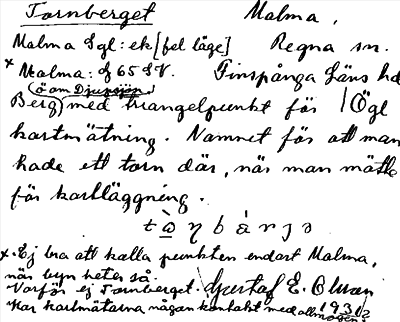 Tornberget Malma,
Malma Sgl: ek [fel läge] Regna sn.
× Malma: f 65 SV. Finspånga läns hd
(ö om Djupsjön)
Berg med triangelpunkt för Ögl
kartmätning. Namnet för att man
hade ett torn där, när man mätte
för kartläggning.
× Ej bra att kalla punkten endast Malma,
när byn heter så.
Varför ej Tornberget. Gustaf E. Olsson
Har kartmätarna någon kontakt med allmogen? 1931